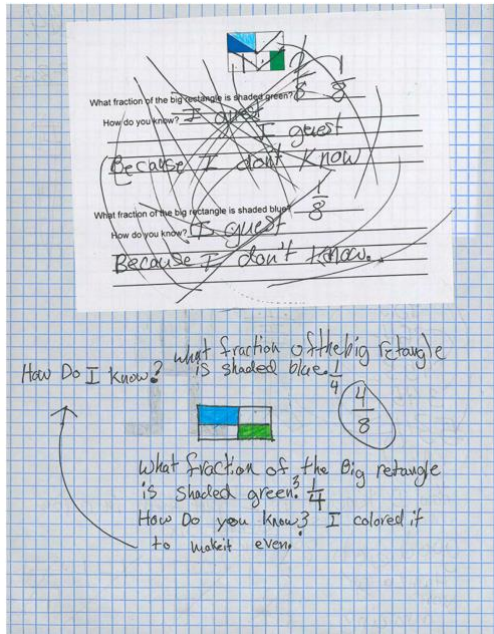 What fraction of the big rectangle is shaded green? 1/8 1/8
How do you know? I guest
I guest
Because I dont know
What fraction of the big rectangle is shaded blue? 1/8
How do you know? I guest
Because I don't know.
what fraction of the big retangle
How Do I Know? is shaded blue. 1/4
4/8
What fraction of the Big retangle
is shaded green? 1/4
How Do you know? I colored it
to make it even.